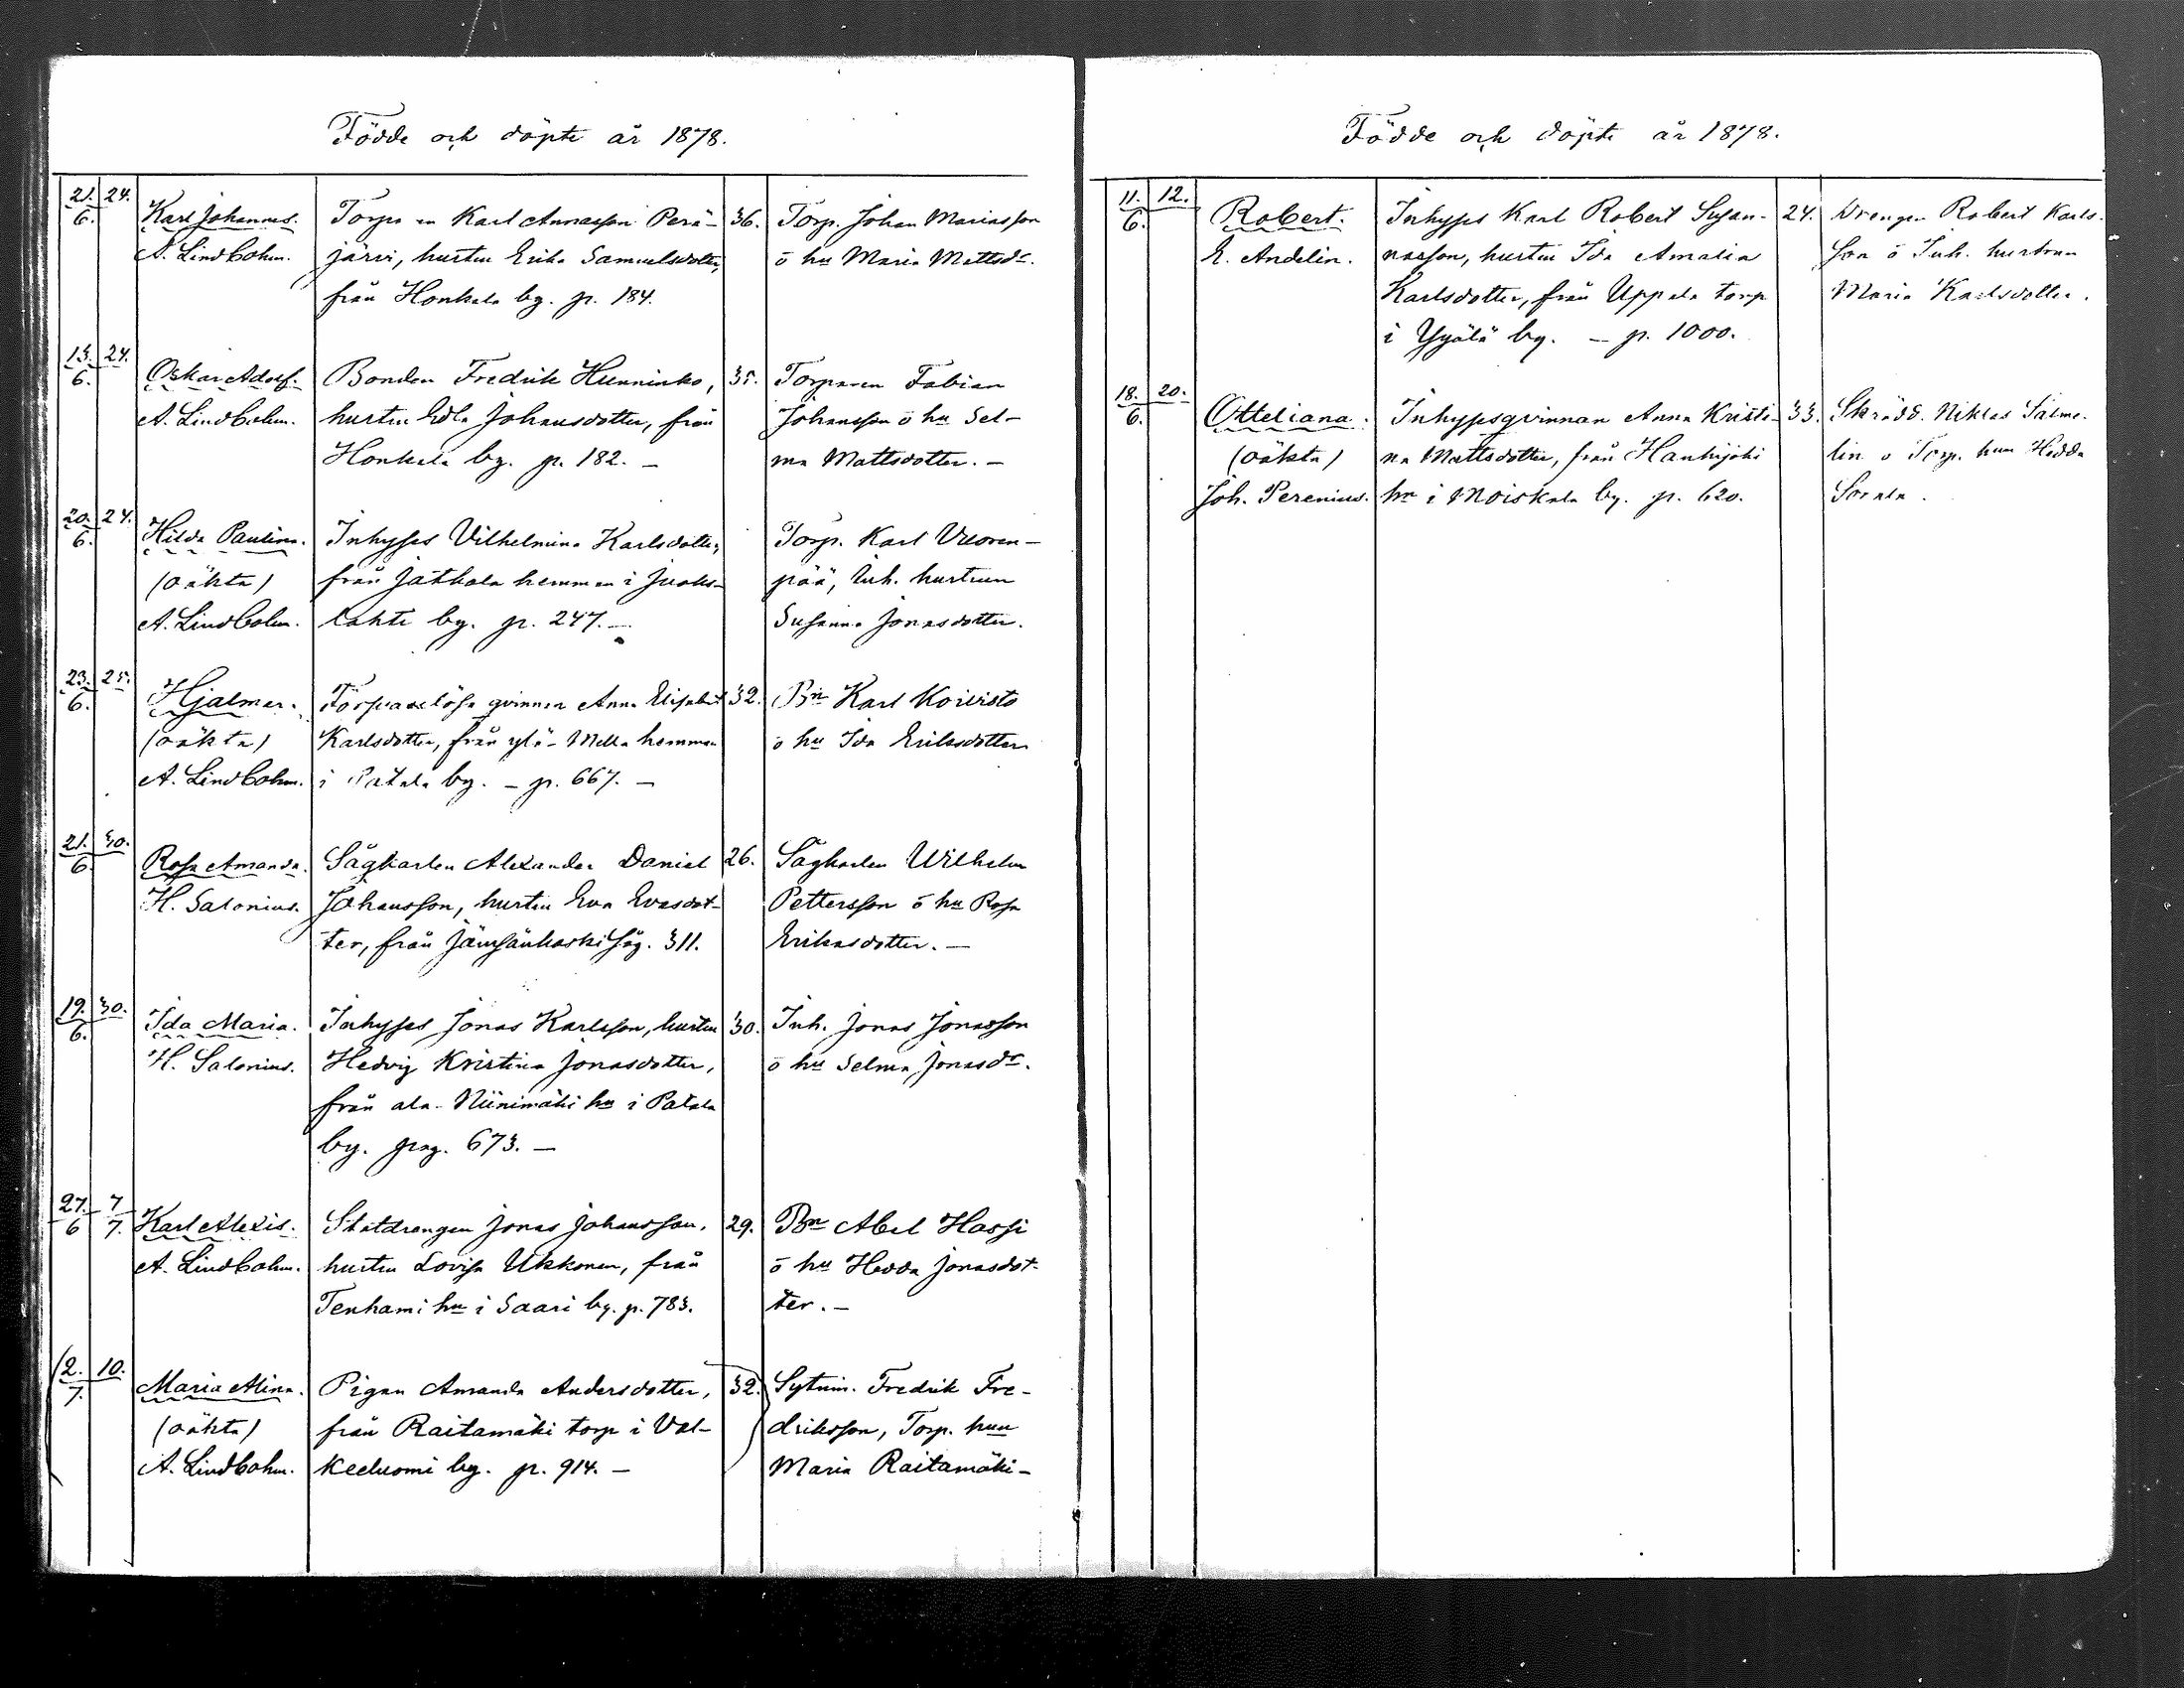 Födde och döpte år 1878.
21. 24. Karl Johannes. Torparen Karl Annasson Perä- 36. Torp. Johan Mariasson
6. A. Lindbohm. järvi, hustru Erika Samuelsdotter, o hu Maria Mattsdr.
från Honkala by. p. 184.
13. 24. Oskar Adolf. Bonden Fredrik Hunninko, 35. Torparen Fabian
6. A. Lindbohm. hustru Edla Johansdotter, från Johansson o hu Sel-
Honkala by. p. 182. – ma Mattsdotter. –
20. 24. Hilda Paulina. Inhyses Vilhelmina Karlsdotter, Torp. Karl Vuoren-
6. (oäkta) från Jatkola hemman i Juoks- pää, Inh. hustrun
A. Lindbohm. lahti by. p. 247. – Susanna Jonasdotter.
23. 25. Hjalmar. Försvarslösa qvinnan Anna Elisabet 32. Bn Karl Koivisto
6. (oäkta) Karlsdotter, från ylä-Mella hemman o hu Ida Eriksdotter
A. Lindbohm. i Patala by. – p. 667. –
21. 30. Rosa Amanda. Sågkarlen Alexander Daniel 26. Sågkarlen Wilhelm
6. H. Salonius. Johansson, hustru Eva Evasdot- Pettersson o hu Rosa
ter, från Jämsänkoski såg. 311. Eriksdotter. –
19. 30. Ida Maria. Inhyses Jonas Karlsson, hustru 30. Inh. Jonas Jonasson
6. H. Salonius. Hedvig Kristina Jonasdotter, o hu Selma Jonasdr.
från ala-Niinimäki hn i Patala
by. pag. 673. –
27. 7 Karl Alexis. Statdrängen Jonas Johansson, 29. Bn Abel Hassi
6 7. A. Lindbohm. hustru Lovisa Ukkonen, från o hu Hedda Jonasdot-
Tenhami hn i Saari by. p. 783. ter. –
2. 10. Maria Alina. Pigan Amanda Andersdotter, 32. Sytnin. Fredrik Fre-
7. (oäkta) från Raitamäki torp i Val- driksson, Torp. hun
A. Lindbohm. keeluomi by. p. 914. – Maria Raitamäki –
Födde och döpte år 1878.
11. 12. Robert. Inhyses Karl Robert Susan- 24. Drengen Robert Karls-
6. E. Andelin. nasson, hustru Ida Amalia son o Inh. hustrun
Karlsdotter, från Uppala torp Maria Karlsdotter.
i Yijälä by. – p. 1000.
18. 20. Otteliana. Inhysesqvinnan Anna Kristi- 33. Skrädd. Niklas Salme-
6. (oäkta) na Mattsdotter, från Hanhijoki lin o Torp. hun Hedda
Joh. Perenius. hn i Moiskala by. p. 620. Sorala.